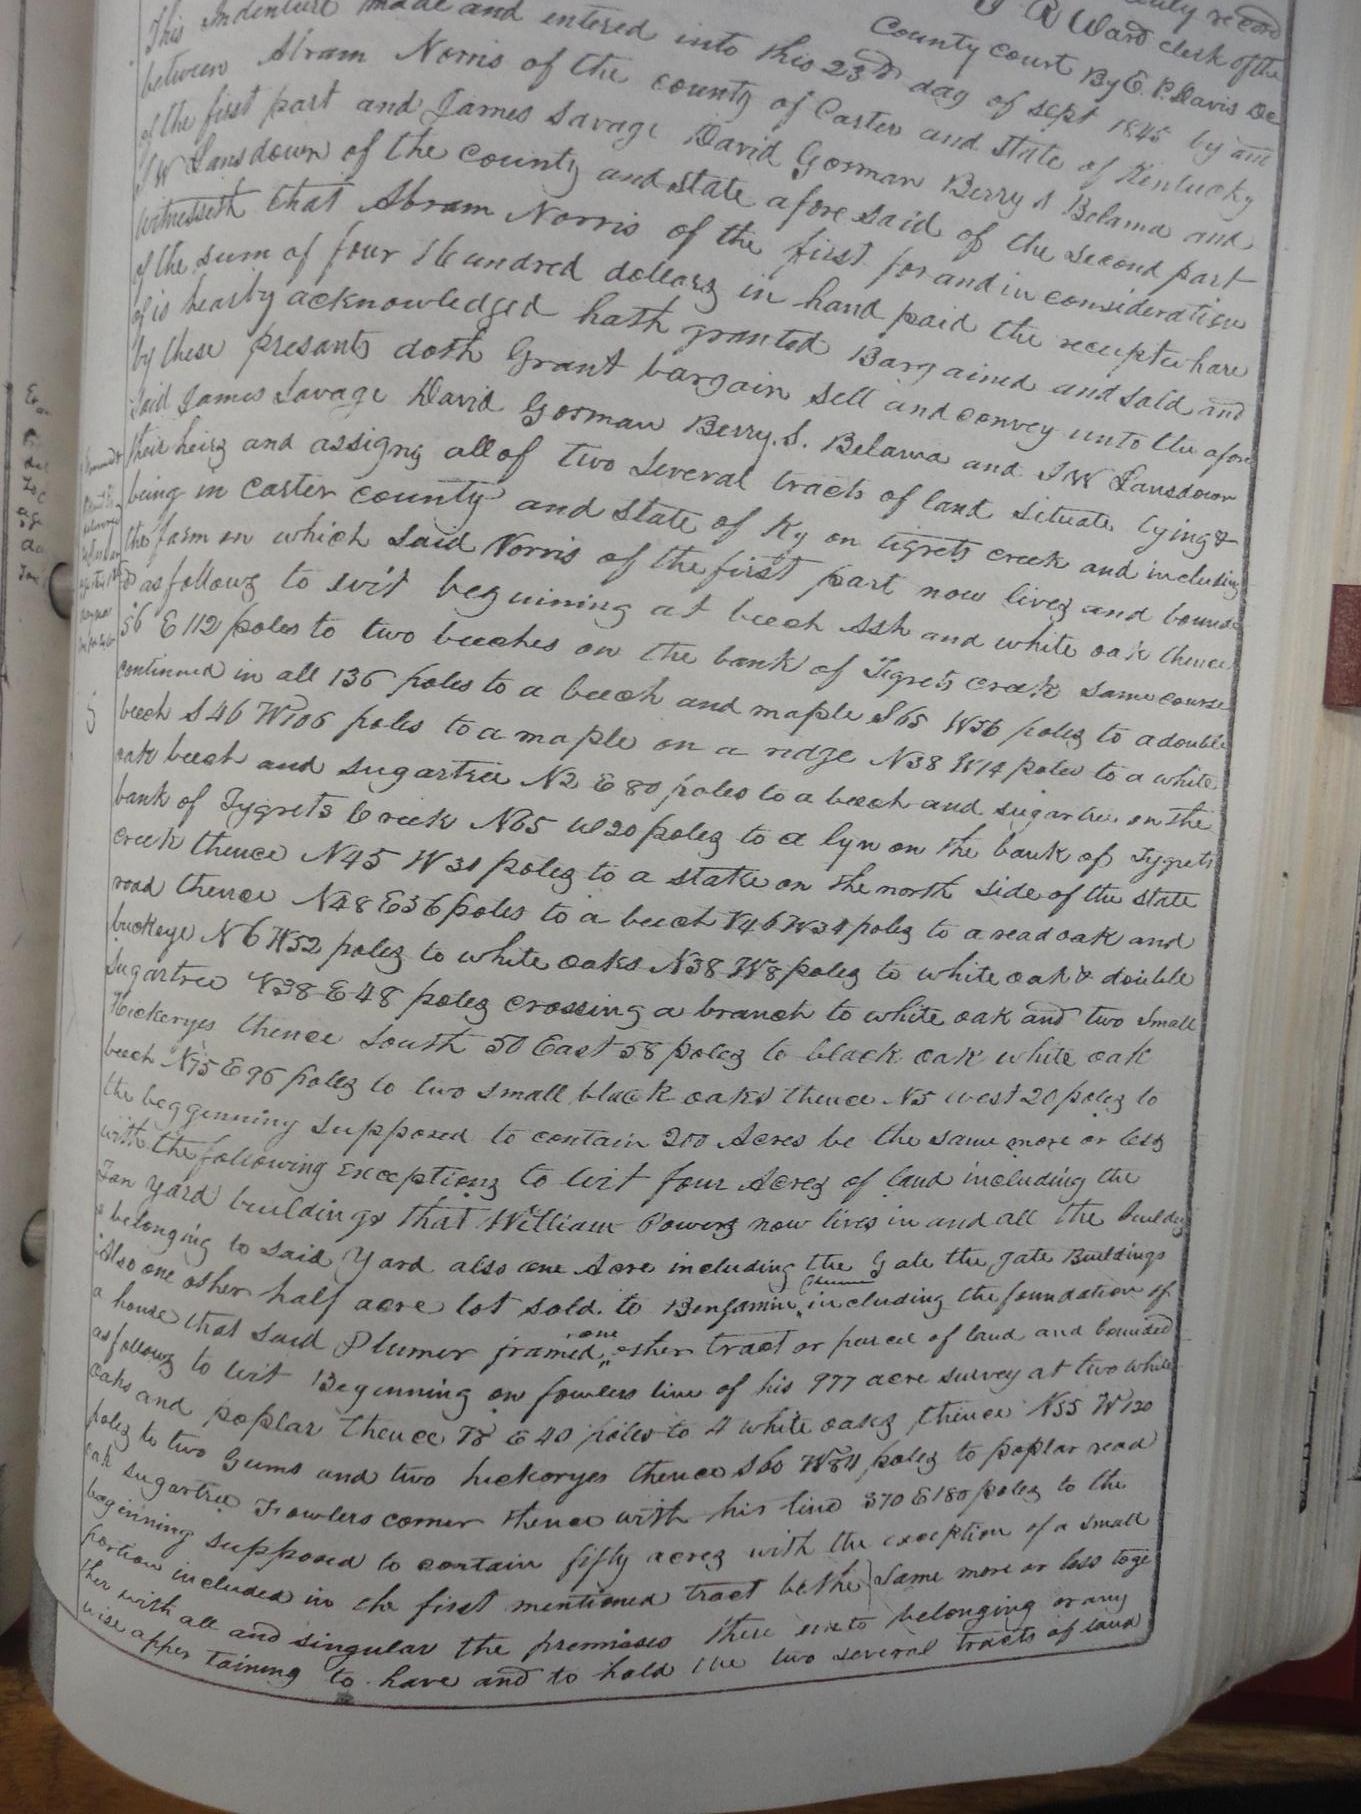 duly record
J R Ward clerk of the
County Court By E. P. Davis De
This Indenture made and entered into this 23rd day of sept 1845 by and
between Abram Norris of the county of Carter and State of Kentucky
of the first part and James Savage David Gorman Berry S Belama and
J W Lansdown of the county and state afore said of the second part
witnesseth that Abram Norris of the first for and in consideration
of the sum of four Hundred dollars in hand paid the receipt whare
of is hearby acknowledged hath granted Bargained and sold and
by these presants doth Grant bargain sell and convey unto the afore
said James Savage David Gorman Berry. S. Belama and J W Lansdown
their heirs and assigns all of two several tracts of land situate lying &
being in Carter county and State of Ky on tigrets creek and including
the farm on which said Norris of the first part now lives and bound
as follows to wit beginning at beech Ash and white oak thence
56 E 112 poles to two beeches on the bank of Tygrets creek same course
continued in all 136 poles to a beech and maple S65 W56 poles to a double
beech S 46 W106 poles to a maple on a ridge N38 W14 poles to a white
oak beech and sugartree N2 E 80 poles to a beech and sugartree on the
bank of Tygrets Creek N65 W20 poles to a lyn on the bank of Tygrets
creek thence N45 W31 poles to a stake on the north side of the state
road thence N48 E36 poles to a beech N46 W34 poles to a read oak and
buckeye N6 W52 poles to white oaks N38 W8 poles to white oak & double
sugartree N38 E48 poles crossing a branch to white oak and two small
Hickeryes thence South 50 East 58 poles to black oak white oak
beech N75 E96 poles to two small black oaks thence N5 west 20 poles to
the begginning supposed to contain 200 Acres be the same more or less
with the following exceptions to wit four Acres of land including the
Tan yard buildings that William Powers now lives in and all the
belonging to said Yard also one Acre including the Gate the gate Buildings
Also one other half acre lot sold to Benjamin Plumer including the foundation of
a house that said Plumer framed one other tract or parcel of land and bounded
as follows to wit Beginning on fowlers line of his 977 acre survey at two white
oaks and poplar thence E 40 poles to 4 white oaks thence N55 W120
poles to two Gums and two hickoryes thence S60 W84 poles to poplar read
oak sugartree Fowlers corner thence with his line S70 E180 poles to the
beginning supposed to contain fifty acres with the exception of a small
portion included in the first mentioned tract be the same more or less toge
ther with all and singular the premises there unto belonging or any
wise apper taining to have and to hold the two several tracts of land